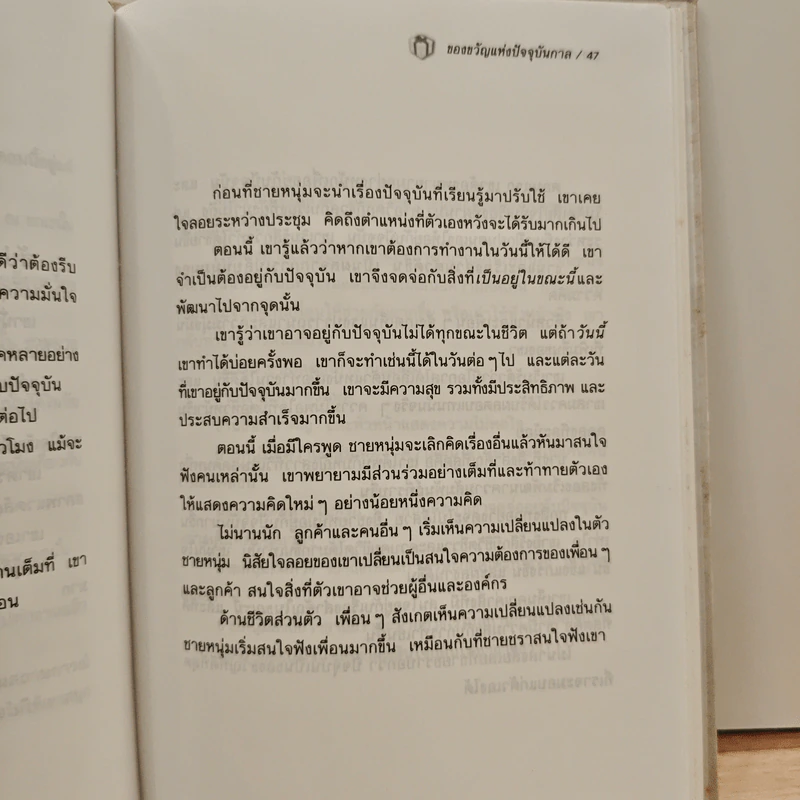 ดีว่าต้องรีบ
ความมั่นใจ
คหลายอย่าง
บปัจจุบัน
ต่อไป
วโมง แม้จะ
านเต็มที่ เขา
อน
ของขวัญแห่งปัจจุบันกาล / 47
ก่อนที่ชายหนุ่มจะนำเรื่องปัจจุบันที่เรียนรู้มาปรับใช้ เขาเคย
ใจลอยระหว่างประชุม คิดถึงตำแหน่งที่ตัวเองหวังจะได้รับมากเกินไป
ตอนนี้ เขารู้แล้วว่าหากเขาต้องการทำงานในวันนี้ให้ได้ดี เขา
จำเป็นต้องอยู่กับปัจจุบัน เขาจึงจดจ่อกับสิ่งที่เป็นอยู่ในขณะนี้และ
พัฒนาไปจากจุดนั้น
เขารู้ว่าเขาอาจอยู่กับปัจจุบันไม่ได้ทุกขณะในชีวิต แต่ถ้าวันนี้
เขาทำได้บ่อยครั้งพอ เขาก็จะทำเช่นนี้ได้ในวันต่อๆ ไป และแต่ละวัน
ที่เขาอยู่กับปัจจุบันมากขึ้น เขาจะมีความสุข รวมทั้งมีประสิทธิภาพ และ
ประสบความสำเร็จมากขึ้น
ตอนนี้ เมื่อมีใครพูด ชายหนุ่มจะเลิกคิดเรื่องอื่นแล้วหันมาสนใจ
ฟังคนเหล่านั้น เขาพยายามมีส่วนร่วมอย่างเต็มที่และท้าทายตัวเอง
ให้แสดงความคิดใหม่ๆ อย่างน้อยหนึ่งความคิด
ไม่นานนัก ลูกค้าและคนอื่นๆ เริ่มเห็นความเปลี่ยนแปลงในตัว
ชายหนุ่ม นิสัยใจลอยของเขาเปลี่ยนเป็นสนใจความต้องการของเพื่อนๆ
และลูกค้า สนใจสิ่งที่ตัวเขาอาจช่วยผู้อื่นและองค์กร
ด้านชีวิตส่วนตัว เพื่อนๆ สังเกตเห็นความเปลี่ยนแปลงเช่นกัน
ชายหนุ่มเริ่มสนใจฟังเพื่อนมากขึ้น เหมือนกับที่ชายชราสนใจฟังเขา